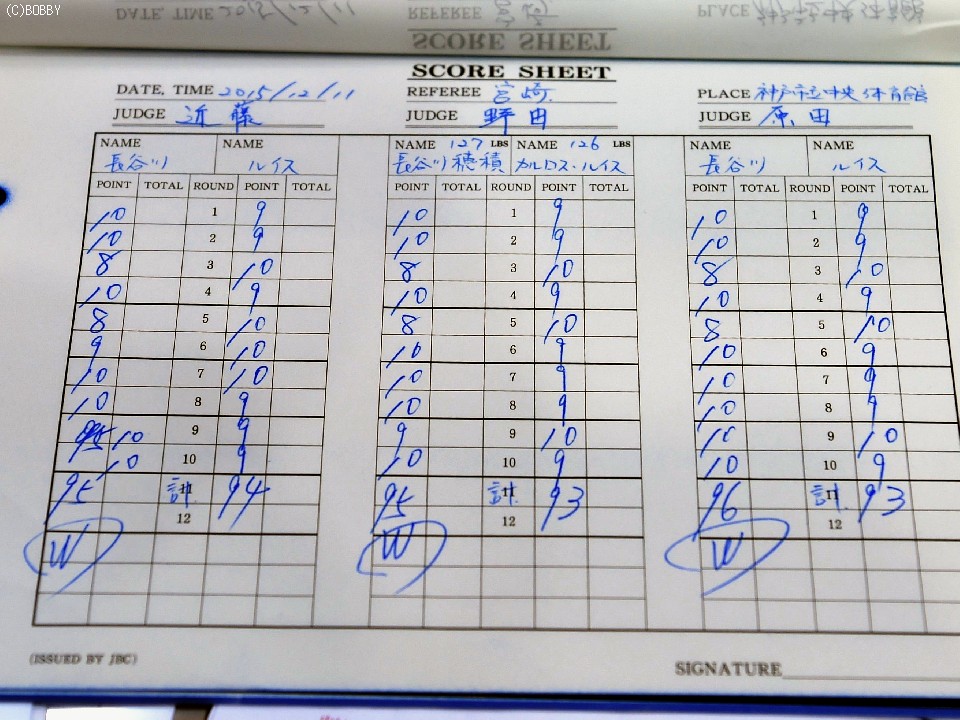 (C)BOBBY
DATE, TIME 2015/12/11
REFEREE 宮崎
PLACE
SCORE SHEET
SCORE SHEET
DATE, TIME 2015/12/11 REFEREE 宮崎 PLACE 神戸市立中央体育館
JUDGE 近藤 JUDGE 野田 JUDGE 原田
NAME NAME NAME 127 LBS NAME 126 LBS NAME NAME
長谷川 ルイス 長谷川穂積 カルロス・ルイス 長谷川 ルイス
POINT TOTAL ROUND POINT TOTAL POINT TOTAL ROUND POINT TOTAL POINT TOTAL ROUND POINT TOTAL
10 1 9 10 1 9 10 1 9
10 2 9 10 2 9 10 2 9
8 3 10 8 3 10 8 3 10
10 4 9 10 4 9 10 4 9
8 5 10 8 5 10 8 5 10
9 6 10 10 6 9 10 6 9
10 7 10 10 7 9 10 7 9
10 8 9 10 8 9 10 8 9
10 9 9 9 9 10 10 9 10
10 10 9 10 10 9 10 10 9
95 計 94 95 計 93 96 計 93
12 12 12
W W W
(ISSUED BY JBC)
SIGNATURE